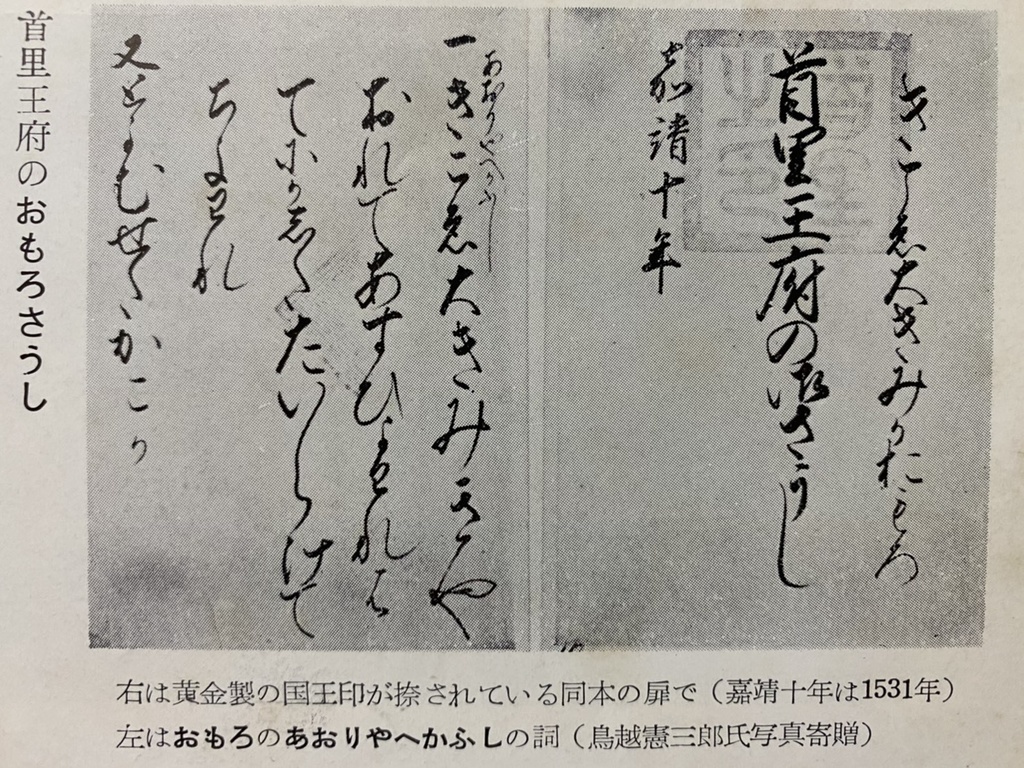 首里王府のおもろさうし
きこゑ大きみかおもろ
首里王府の御さうし
嘉靖十年
あおりやへかふし
一きこゑ大きみきや
おれてあすひよわれは
てにかしたたいらけて
ちよわれ
又とよむせたかこか
右は黄金製の国王印が捺されている同本の扉で（嘉靖十年は1531年）
左はおもろのあおりやへかふしの詞（鳥越憲三郎氏写真寄贈）